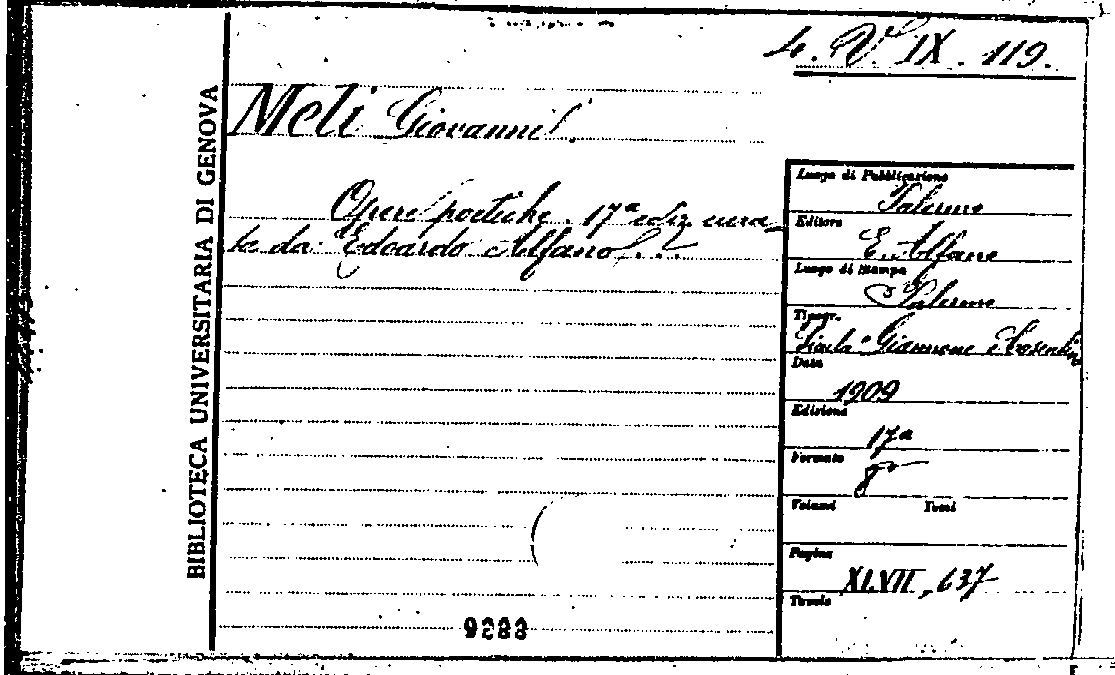 4. V. IX. 119.
BIBLIOTECA UNIVERSITARIA DI GENOVA
Meli Giovanni.
Opere poetiche. 17ª ediz. cura-
te da Edoardo Alfano...
Luogo di Pubblicazione
Palermo
Editore
E. Alfano
Luogo di Stampa
Palermo
Tipogr.
Giannone e
Data
1909
Edizione
17ª
Formato
8º
Volumi Tomi
Pagine
XLVII, 637
Tavole